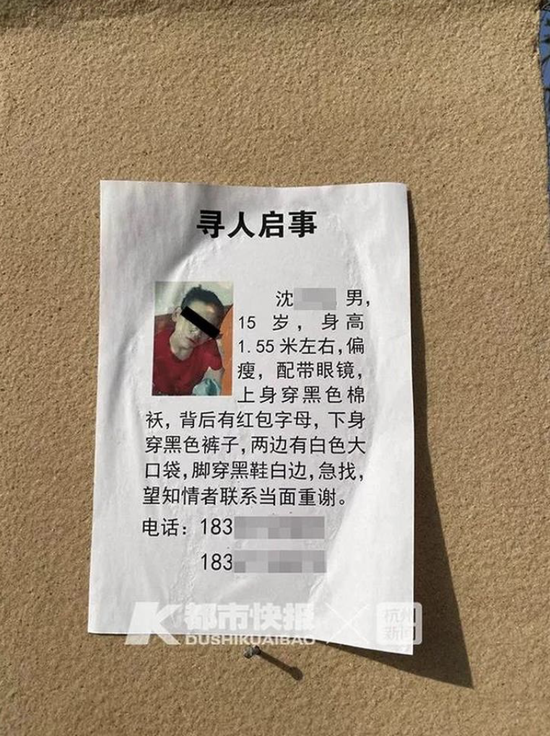 寻人启事
沈 男，
15 岁，身高
1.55 米左右，偏
瘦，配带眼镜，
上身穿黑色棉
袄，背后有红包字母，下身
穿黑色裤子，两边有白色大
口袋，脚穿黑鞋白边，急找，
望知情者联系当面重谢。
电话：183
183
K 都市快报
DUSHIKUAIBAO
杭州
新闻